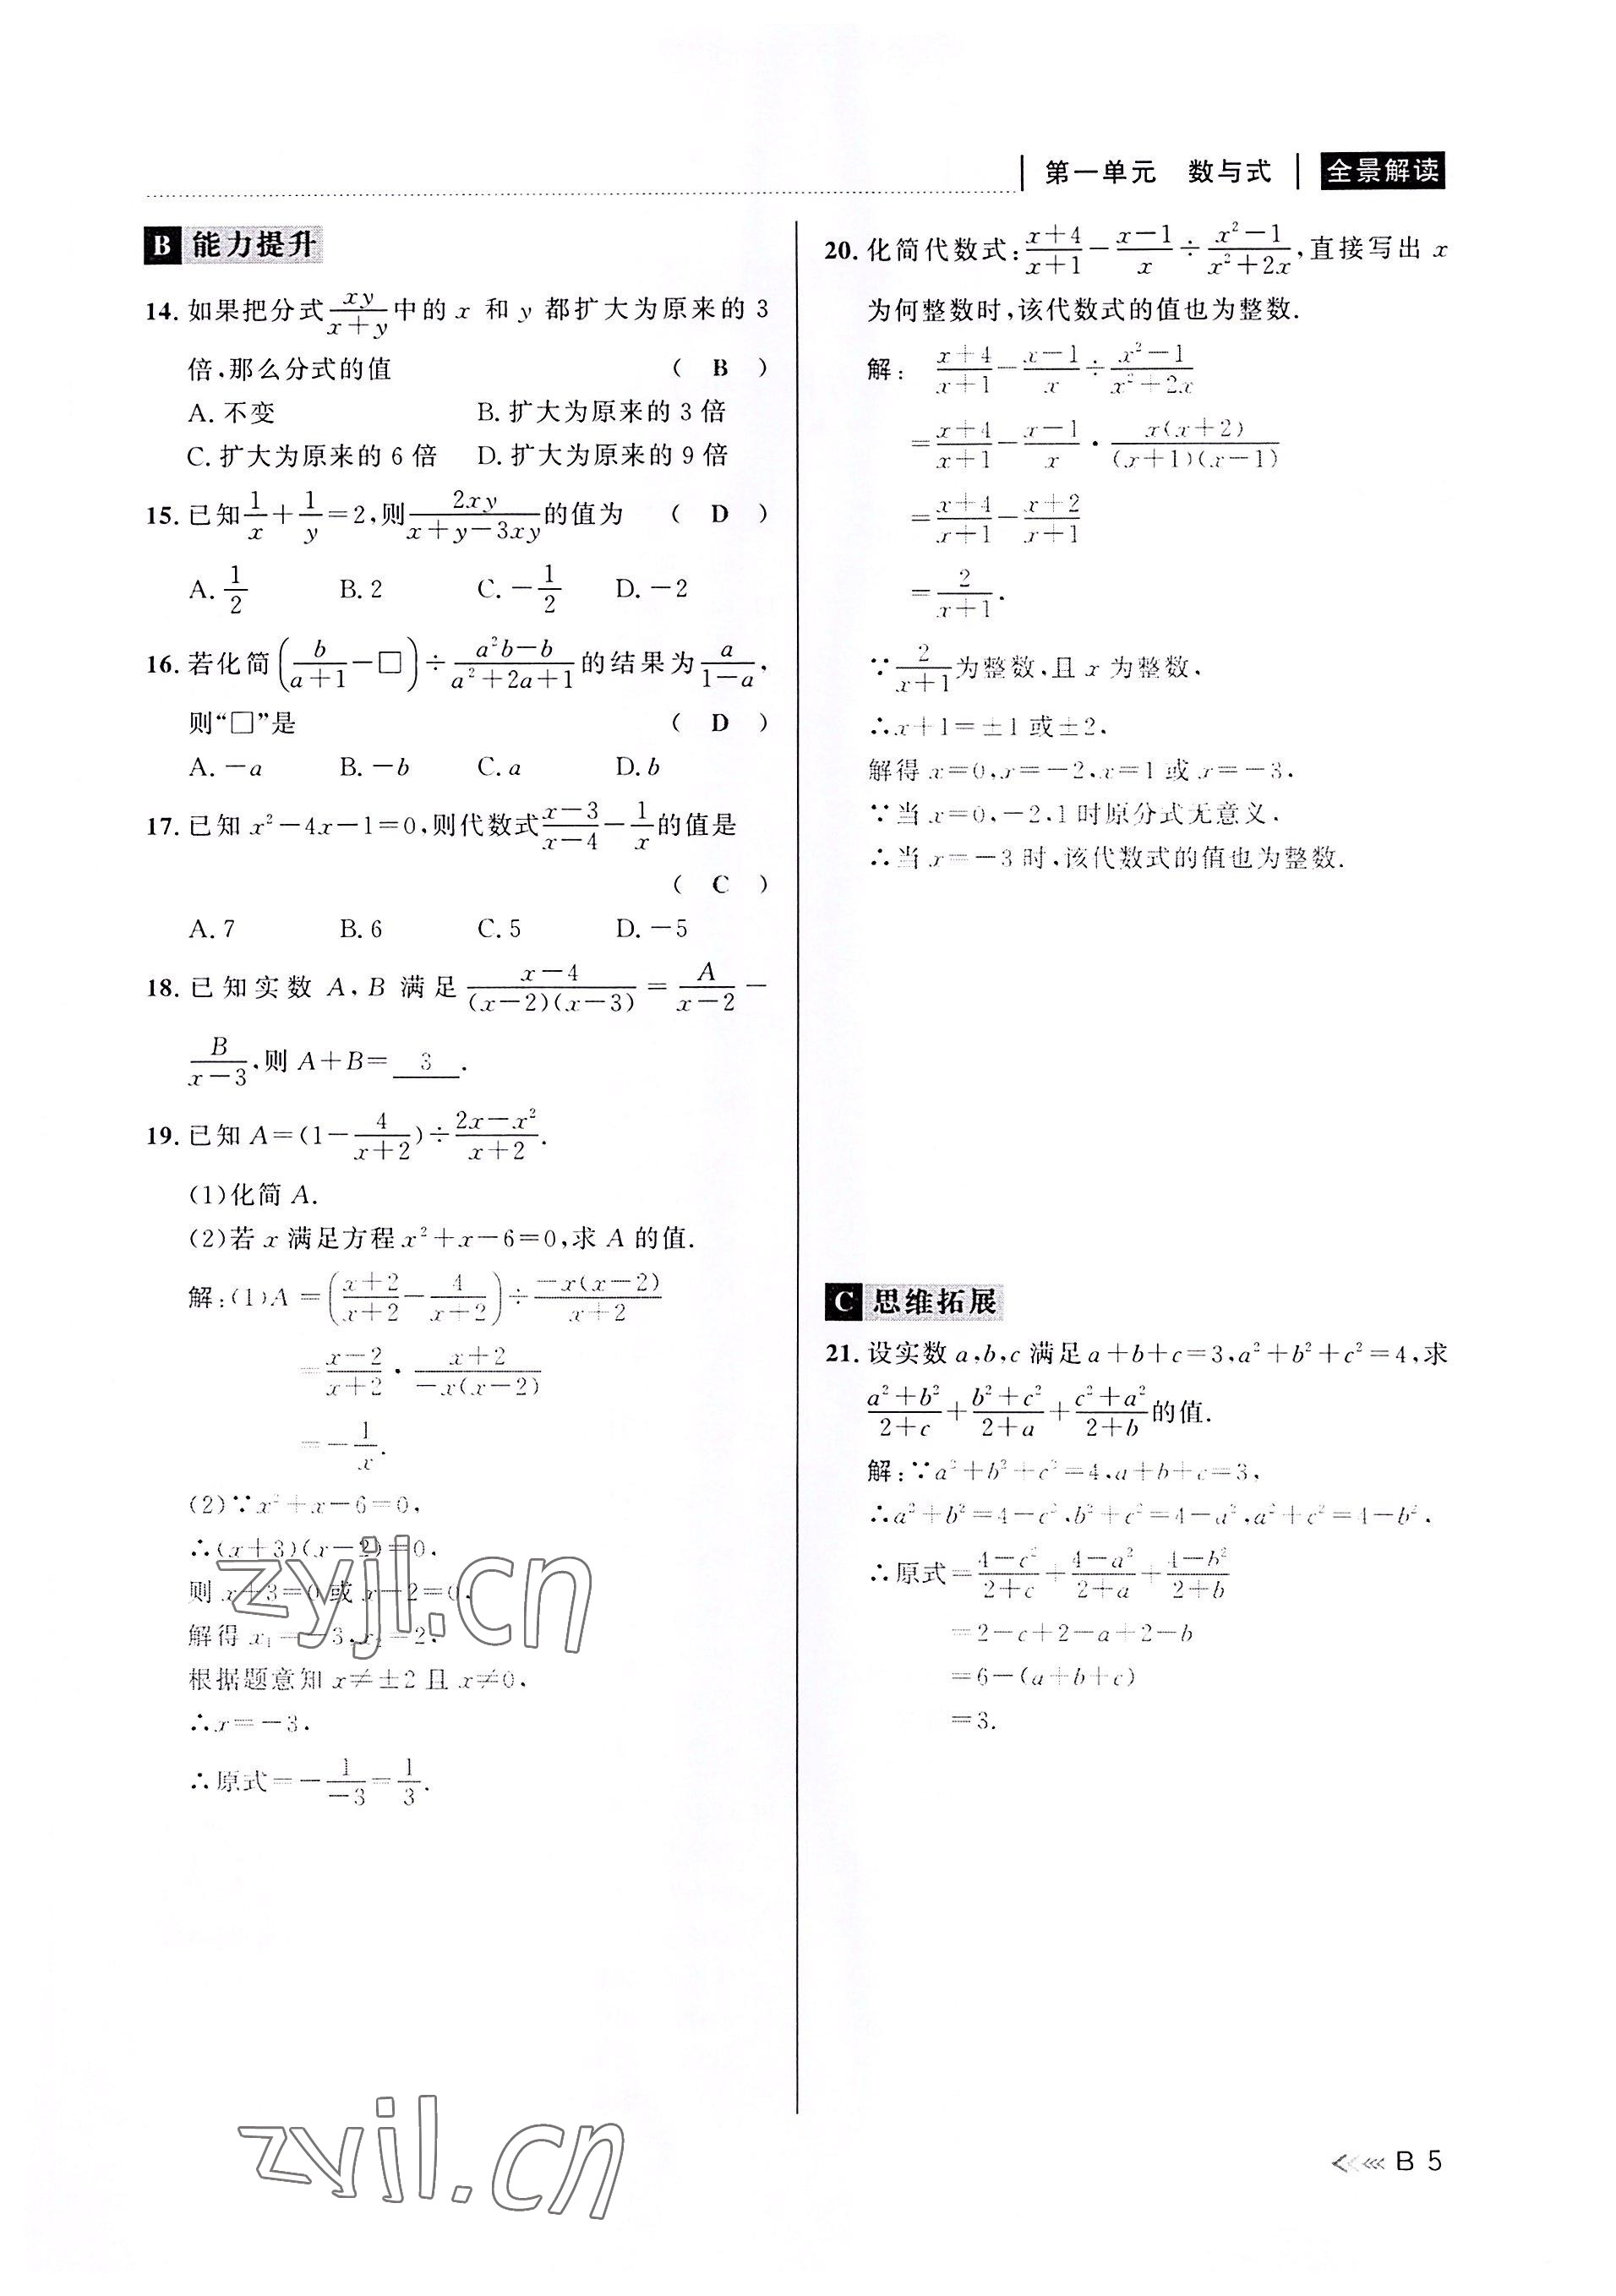 第一单元 数与式 全景解读
B 能力提升
14. 如果把分式xy/(x+y)中的 x 和 y 都扩大为原来的 3
倍,那么分式的值 ( B )
A. 不变 B. 扩大为原来的 3 倍
C. 扩大为原来的 6 倍 D. 扩大为原来的 9 倍
15. 已知1/x+1/y=2,则2xy/(x+y-3xy)的值为 ( D )
A. 1/2 B. 2 C. -1/2 D. -2
16. 若化简(b/(a+1)-□)÷(a²b-b)/(a²+2a+1)的结果为a/(1-a),
则“□”是 ( D )
A. -a B. -b C. a D. b
17. 已知 x²-4x-1=0,则代数式(x-3)/(x-4)-1/x的值是
( C )
A. 7 B. 6 C. 5 D. -5
18. 已知实数 A,B 满足(x-4)/((x-2)(x-3))=A/(x-2)-
B/(x-3),则 A+B= 3 .
19. 已知 A=(1-4/(x+2))÷(2x-x²)/(x+2).
(1)化简 A.
(2)若 x 满足方程 x²+x-6=0,求 A 的值.
解:(1)A=((x+2)/(x+2)-4/(x+2))÷(-x(x-2))/(x+2)
=(x-2)/(x+2)·(x+2)/(-x(x-2))
=-1/x.
(2)∵x²+x-6=0,
∴(x+3)(x-2)=0,
则 x+3=0 或 x-2=0,
解得 x₁=-3,x₂=2.
根据题意知 x≠±2 且 x≠0,
∴x=-3.
∴原式=-1/(-3)=1/3.
zyjl.cn
zyjl.cn
20. 化简代数式:(x+4)/(x+1)-(x-1)/x÷(x²-1)/(x²+2x),直接写出 x
为何整数时,该代数式的值也为整数.
解: (x+4)/(x+1)-(x-1)/x÷(x²-1)/(x²+2x)
=(x+4)/(x+1)-(x-1)/x·x(x+2)/((x+1)(x-1))
=(x+4)/(x+1)-(x+2)/(x+1)
=2/(x+1).
∵2/(x+1)为整数,且 x 为整数,
∴x+1=±1 或±2,
解得 x=0,x=-2,x=1 或 x=-3.
∵当 x=0,-2,1 时原分式无意义,
∴当 x=-3 时,该代数式的值也为整数.
C 思维拓展
21. 设实数 a,b,c 满足 a+b+c=3,a²+b²+c²=4,求
(a²+b²)/(2+c)+(b²+c²)/(2+a)+(c²+a²)/(2+b)的值.
解:∵a²+b²+c²=4,a+b+c=3,
∴a²+b²=4-c²,b²+c²=4-a²,a²+c²=4-b²,
∴原式=(4-c²)/(2+c)+(4-a²)/(2+a)+(4-b²)/(2+b)
=2-c+2-a+2-b
=6-(a+b+c)
=3.
B 5